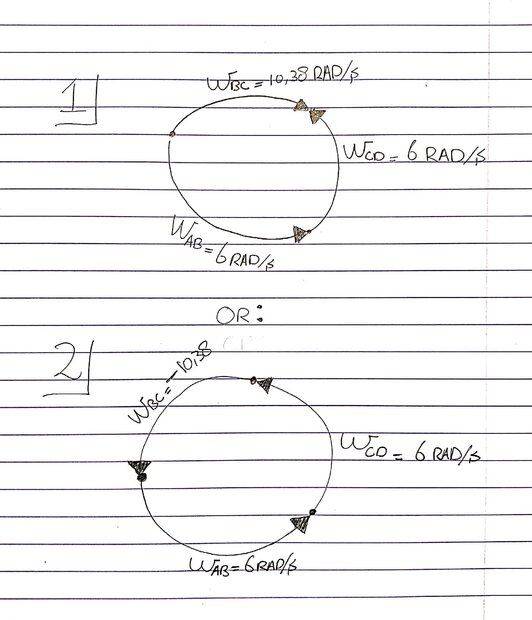 1
WBC = 10,38 RAD/s
WCD = 6 RAD/s
WAB = 6 RAD/s
OR:
2
WBC = -10,38
WCD = 6 RAD/s
WAB = 6 RAD/s